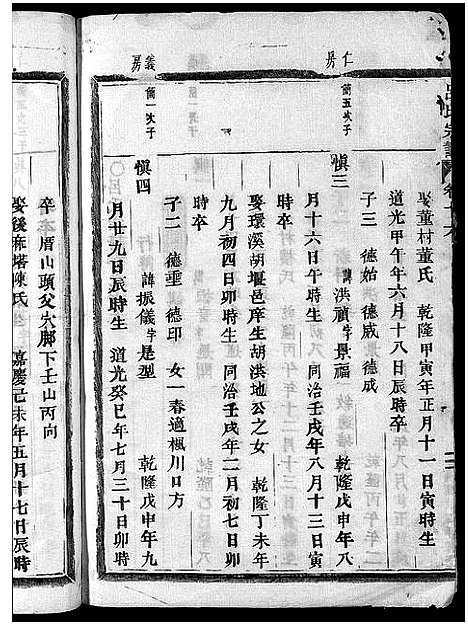 呂氏宗譜
娶董村董氏 乾隆甲寅年正月十一日寅時生
道光甲午年六月十八日辰時卒
子三 德始 德威 德成
仁房
簡五次子
慎三 諱洪禎字景福 乾隆戊申年八
月十六日午時生 同治壬戌年八月十三日寅
時卒
娶環溪胡堰邑庠生胡洪地公之女 乾隆丁未年
九月初四日卯時生 同治壬戌年二月初七日卯
時卒
子二 德垂 德印 女一春適楓川口方
義房
簡一次子
慎四 諱振儀字是型 乾隆戊申年九
月廿九日辰時生 道光癸巳年七月三十日卯時
卒 厝山頭父穴腳下壬山丙向
娶後麻塔陳氏 嘉慶己未年五月十七日辰時